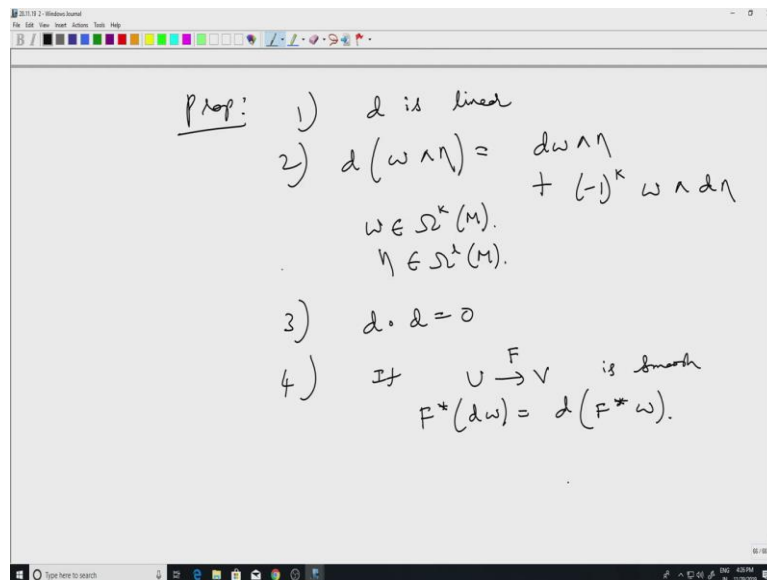 28.11.19 2 - Windows Journal
File Edit View Insert Actions Tools Help
B I
Prop: 1) d is linear
2) d(ω∧η) = dω∧η
+ (-1)^k ω∧dη
ω ∈ Ω^k(M).
η ∈ Ω^l(M).
3) d∘d = 0
4) If U →^F V is smooth
F*(dω) = d(F*ω).
66/66
Type here to search
ENG 4:35 PM